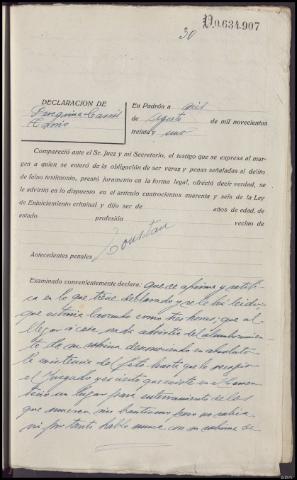 30
D.0.634.907
DECLARACION DE
En Padrón a seis
de Agosto de mil novecientos
treinta uno
Compareció ante el Sr. Juez y mi Secretario, el testigo que se expresa al mar-
gen a quien se enteró de la obligación de ser veraz y penas señaladas al delito
de falso testimonio, prestó juramento en la forma legal, ofreció decir verdad, se
le advirtió en lo dispuesto en el artículo cuatrocientos cuarenta y seis de la Ley
de Enjuiciamiento criminal y dijo ser de años de edad, de
estado profesión vecino de
Constan
Antecedentes penales
Examinado convenientemente declara: Que se afirma y ratifi-
ca en lo que tiene declarado y se le ha leido:
que estuvo lavando como tres horas; que al
llegar a casa nada advirtió del alumbramien-
to de su sobrina desconociendo en absoluto
la existencia del feto hasta que lo recogió
el Juzgado; es cierto que existe en el cemen-
terio un lugar para enterramiento de los
que mueran sin bautismo pero no sabía
ni por tanto habló nunca con su sobrina de